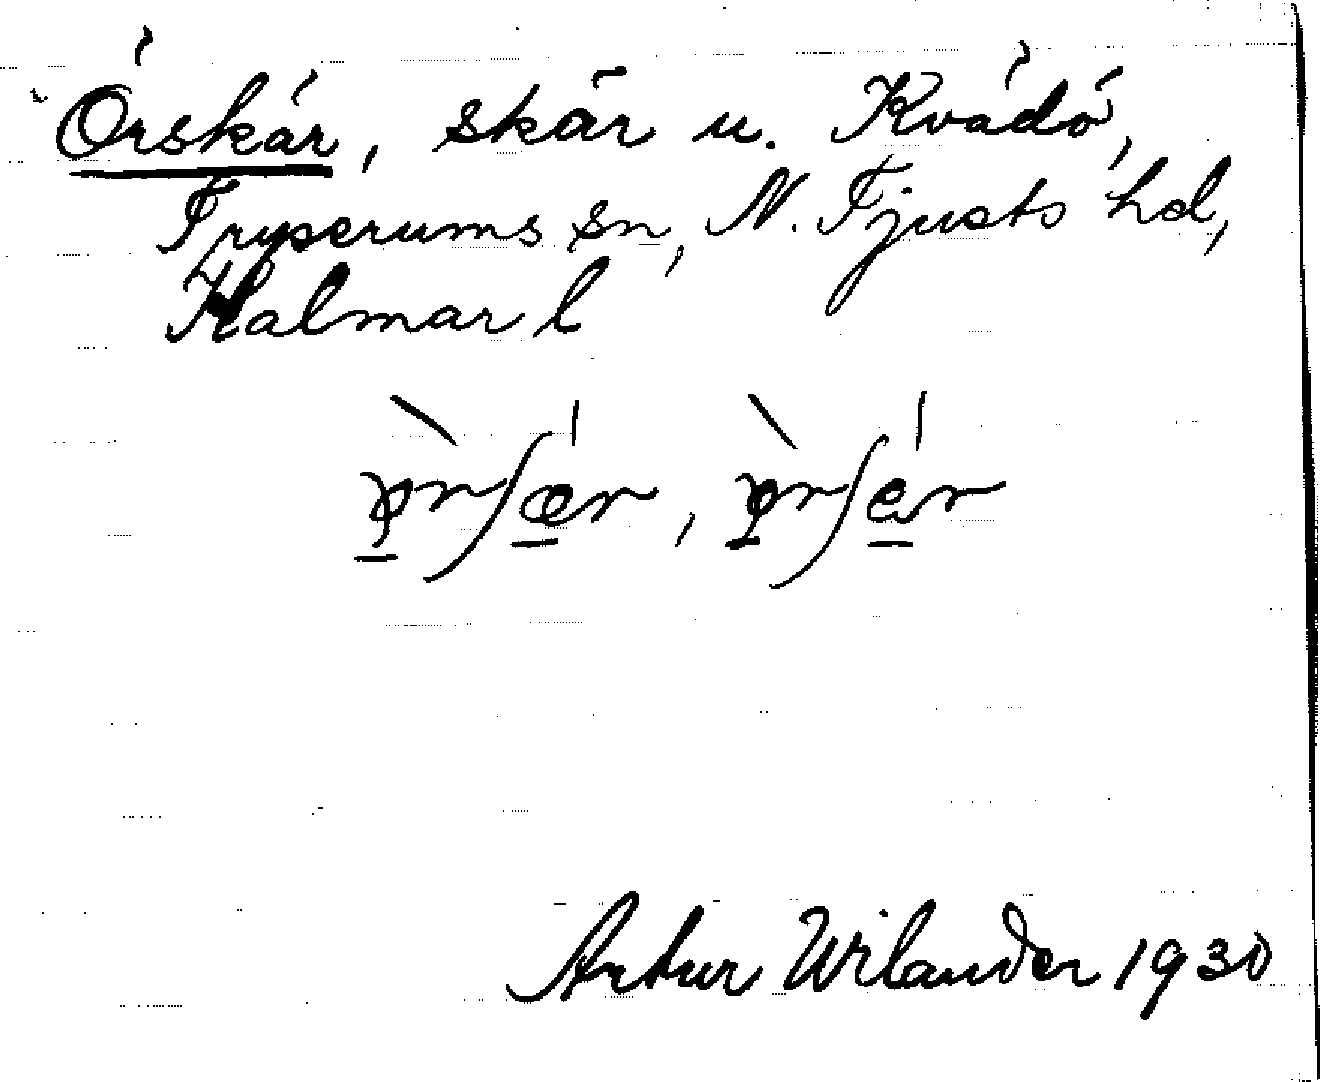 Örskär, skär u. Kvädö,
Tryserums sn, N. Tjusts hd,
Kalmar l
Artur Wilander 1930